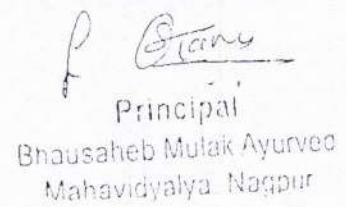 Principal
Bhausaheb Mulak Ayurved
Mahavidyalya Nagpur